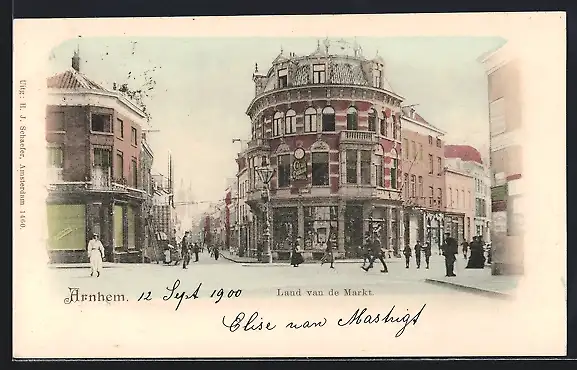 Uitg: H. J. Schaefer, Amsterdam 1460.
Arnhem. 12 Sept 1900 Land van de Markt.
Elise van de Mastrigt